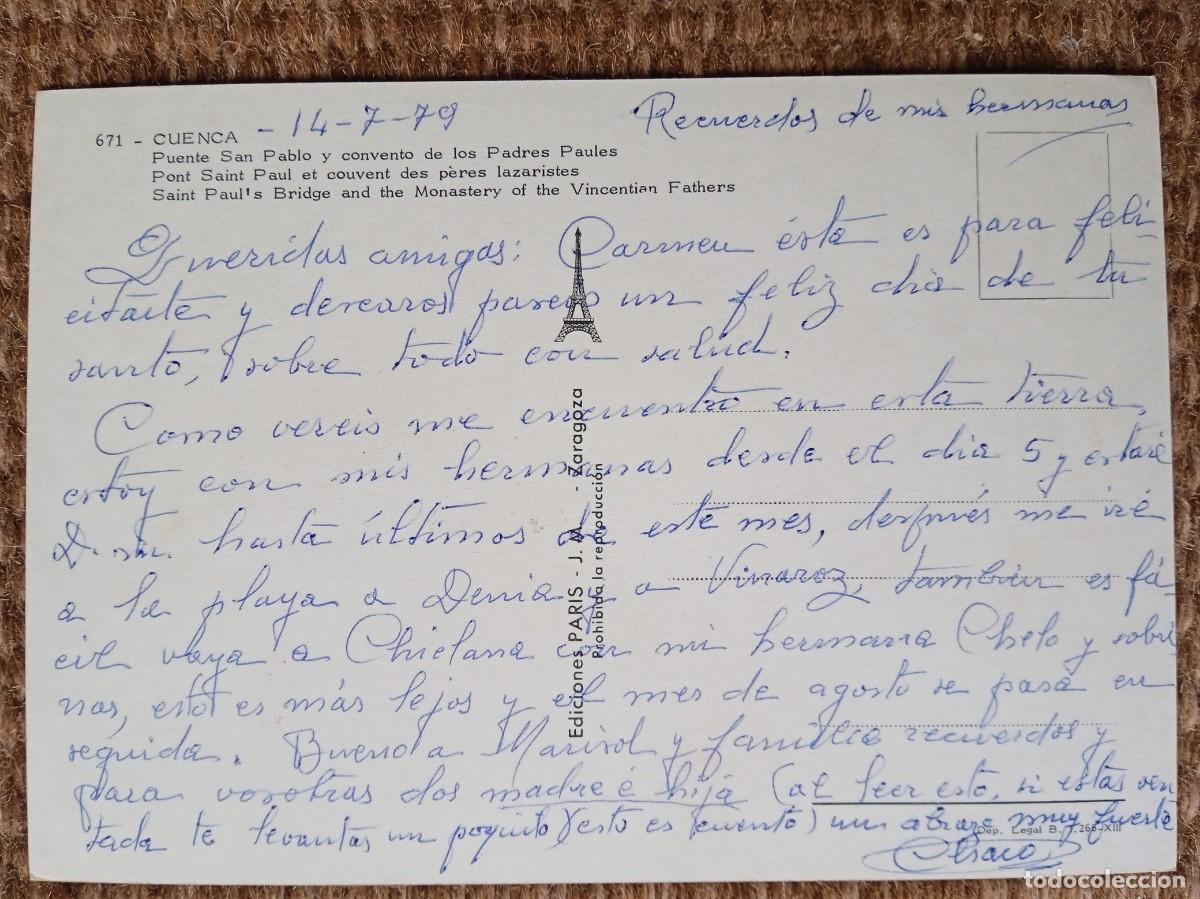 Recuerdos de mis hermanas
671 - CUENCA - 14-7-79
Puente San Pablo y convento de los Padres Paules
Pont Saint Paul et couvent des pères lazaristes
Saint Paul's Bridge and the Monastery of the Vincentian Fathers
Queridas amigas: Carmen ésta es para feli-
citarte y desearos paseis un feliz dia de tu
santo, sobre todo con salud.
Como vereis me encuentro en esta tierra,
estoy con mis hermanas desde el dia 5 y estaré
D. m. hasta últimos de este mes, después me iré
a la playa a Denia y a Vinaroz, tambien es fá-
cil vaya a Chiclana con mi hermana Chelo y sobri
nas, esto es más lejos y el mes de agosto se pasa en
seguida. Bueno a Marisol y familia recuerdos y
para vosotras dos madre é hija (al leer esto, si estas sen
tada te levantas un poquito) (esto es cuento) un abrazo muy fuerte
Ediciones PARIS - J. M. - Zaragoza
Prohibida la reproducción
Dep. Legal B. .266-XIII
todocoleccion